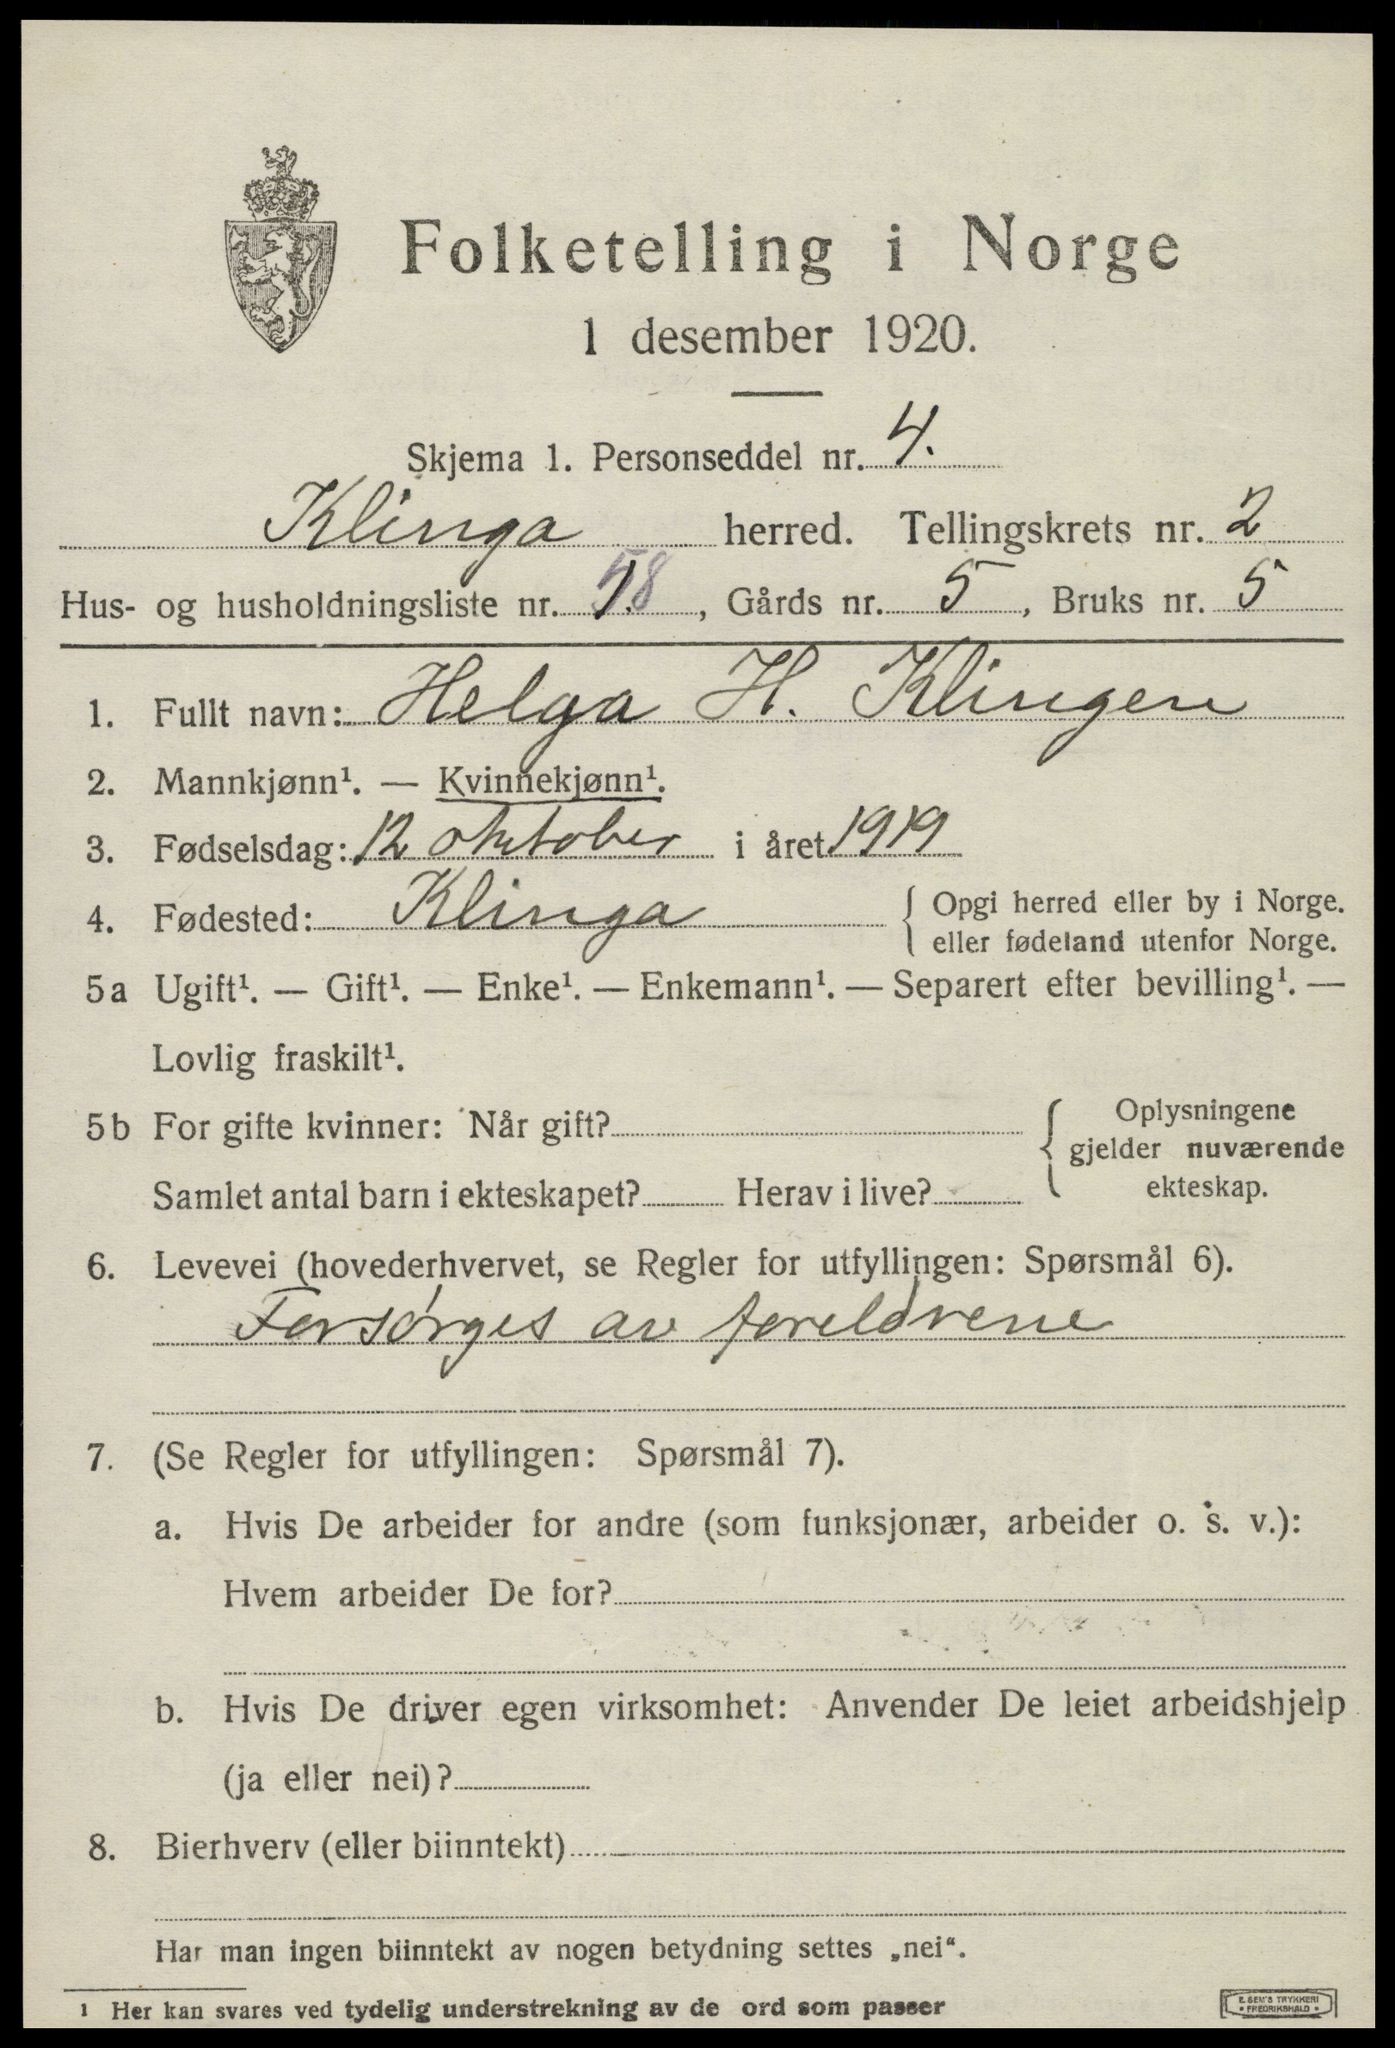 Folketelling i Norge
1 desember 1920.
Skjema 1. Personseddel nr. 4.
Klinga herred. Tellingskrets nr. 2
Hus- og husholdningsliste nr. 58, Gårds nr. 5, Bruks nr. 5
1. Fullt navn: Helga H. Klingen
2. Mannkjønn¹. — Kvinnekjønn¹.
3. Fødselsdag: 12 oktober i året 1919
4. Fødested: Klinga { Opgi herred eller by i Norge.
eller fødeland utenfor Norge.
5a Ugift¹. — Gift¹. — Enke¹. — Enkemann¹. — Separert efter bevilling¹. —
Lovlig fraskilt¹.
5b For gifte kvinner: Når gift? { Oplysningene
gjelder nuværende
ekteskap.
Samlet antal barn i ekteskapet? Herav i live?
6. Levevei (hovederhvervet, se Regler for utfyllingen: Spørsmål 6).
Forsørges av foreldrene
7. (Se Regler for utfyllingen: Spørsmål 7).
a. Hvis De arbeider for andre (som funksjonær, arbeider o. s. v.):
Hvem arbeider De for?
b. Hvis De driver egen virksomhet: Anvender De leiet arbeidshjelp
(ja eller nei)?
8. Bierhverv (eller biinntekt)
Har man ingen biinntekt av nogen betydning settes „nei“.
1 Her kan svares ved tydelig understrekning av de ord som passer
E. SEM'S TRYKKERI
• FREDRIKSHALD •